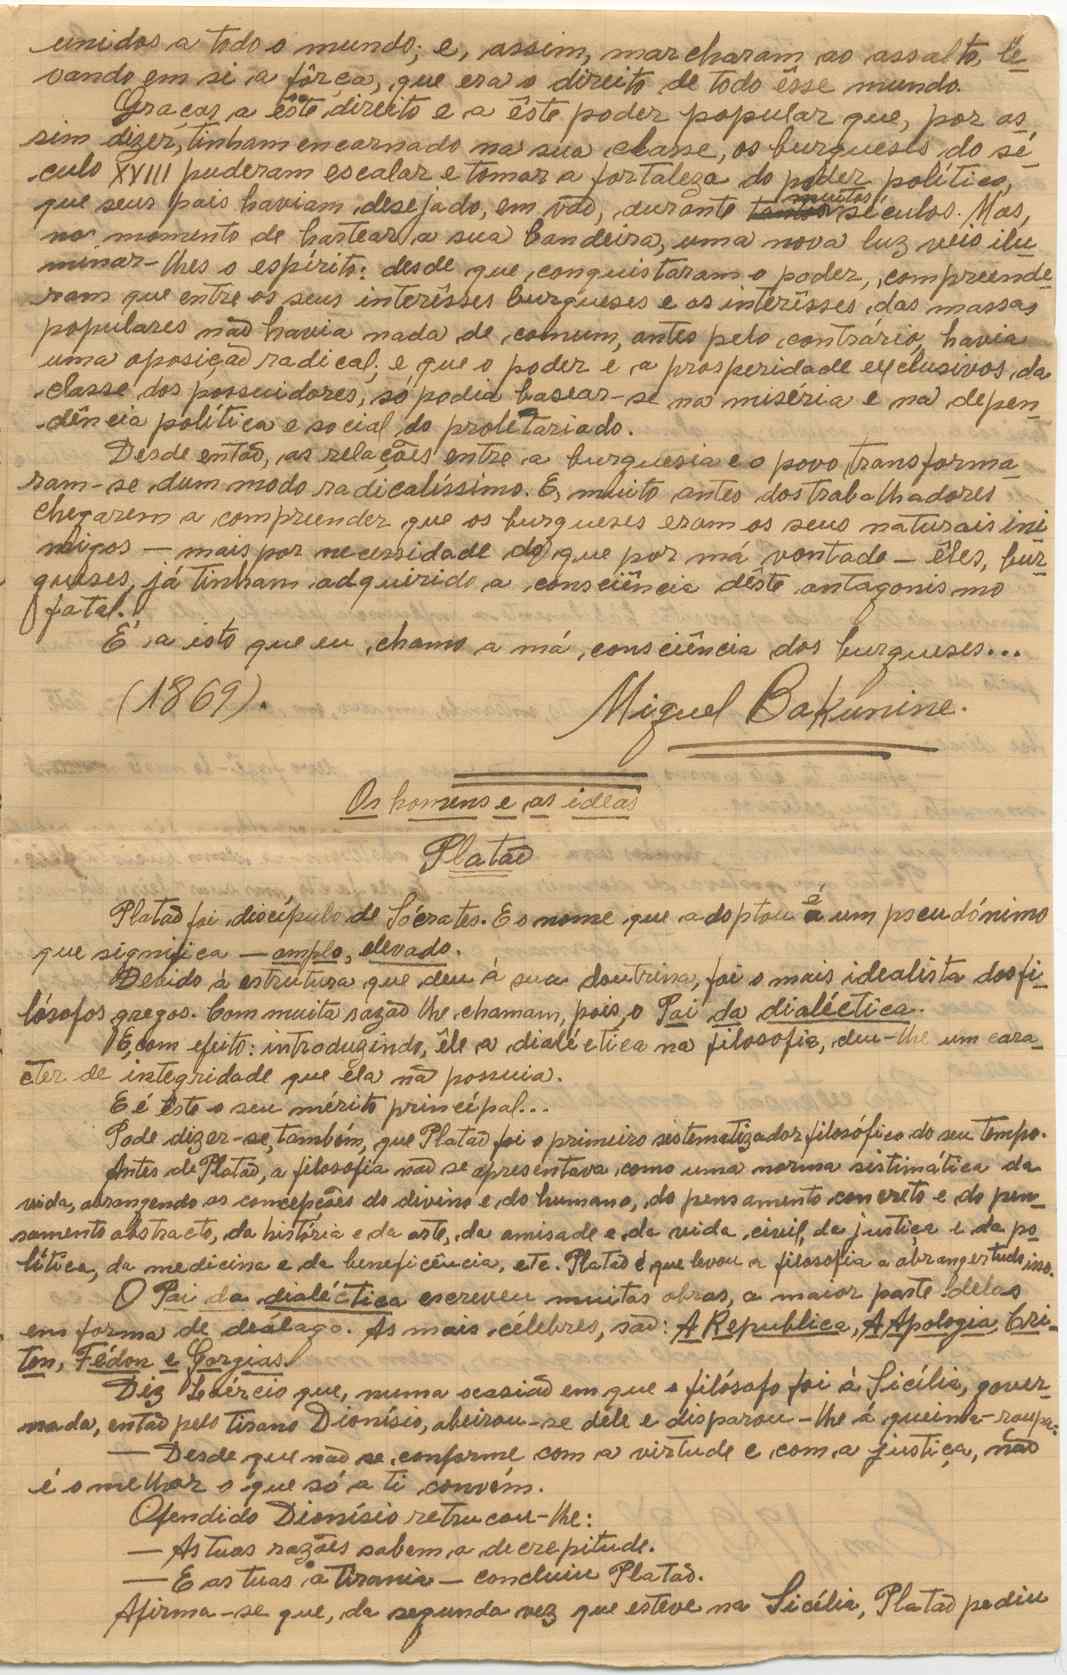 unidos a todo o mundo; e, assim, marcharam ao assalto, le-
vando em si a fôrça, que era o direito de todo êsse mundo.
Graças a êste direito e a êste poder popular que, por as-
sim dizer, tinham encarnado na sua classe, os burgueses do sé-
culo XVIII puderam escalar e tomar a fortaleza do poder político,
que seus pais haviam desejado, em vão, durante muitos séculos. Mas,
no momento de hastear a sua bandeira, uma nova luz veio ilu-
minar-lhes o espírito: desde que conquistaram o poder, compreende-
ram que entre os seus interêsses burgueses e os interêsses das massas
populares não havia nada de comum, antes pelo contrário, havia
uma oposição radical; e que o poder e a prosperidade exclusivos da
classe dos possuidores, só podia basear-se na miséria e na depen-
dência política e social do proletariado.
Desde então, as relações entre a burguesia e o povo transforma-
ram-se dum modo radicalíssimo. E, muito antes dos trabalhadores
chegarem a compreender que os burgueses eram os seus naturais ini
migos — mais por necessidade do que por má vontade — êles, bur-
gueses, já tinham adquirido a consciência dêste antagonismo
fatal.
É a isto que eu chamo a má consciência dos burgueses...
(1869). Miguel Bakunine.
Os homens e as ideas
Platão
Platão foi discípulo de Sócrates. E o nome que adoptou é um pseudónimo
que significa — amplo, elevado.
Devido à estrutura que deu à sua doutrina, foi o mais idealista dos fi-
lósofos gregos. Com muita razão lhe chamam, pois, o Pai da dialéctica.
E, com efeito: introduzindo, êle a dialéctica na filosofia, deu-lhe um cara-
cter de integridade que ela não possuia.
E é êste o seu mérito principal...
Pode dizer-se, também, que Platão foi o primeiro sistematizador filosófico do seu tempo.
Antes de Platão, a filosofia não se apresentava como uma norma sistimática da
vida, abrangendo as concepções do divino e do humano, do pensamento concreto e do pen-
samento abstracto, da história e da arte, da amisade e da vida civil, da justiça e da po-
lítica, da medicina e da beneficência, etc. Platão é que levou a filosofia a abranger tudo isso.
O Pai da dialéctica escreveu muitas obras, a maior parte delas
em forma de diálago. As mais célebres, são: A Republica, A Apologia, Cri-
ton, Fédon e Gorgias.
Diz Laércio que, numa ocasião em que o filósofo foi à Sicília, gover-
nada, então pelo tirano Dionísio, abeirou-se dele e disparou-lhe à queima-roupa:
— Desde que não se conforme com a virtude e com a justiça, não
é o melhor o que só a ti convém.
Ofendido Dionísio retrucou-lhe:
— As tuas razões sabem a decrepitude.
— E as tuas a tirania — concluiu Platão.
Afirma-se que, da segunda vez que esteve na Sicília, Platão pediu